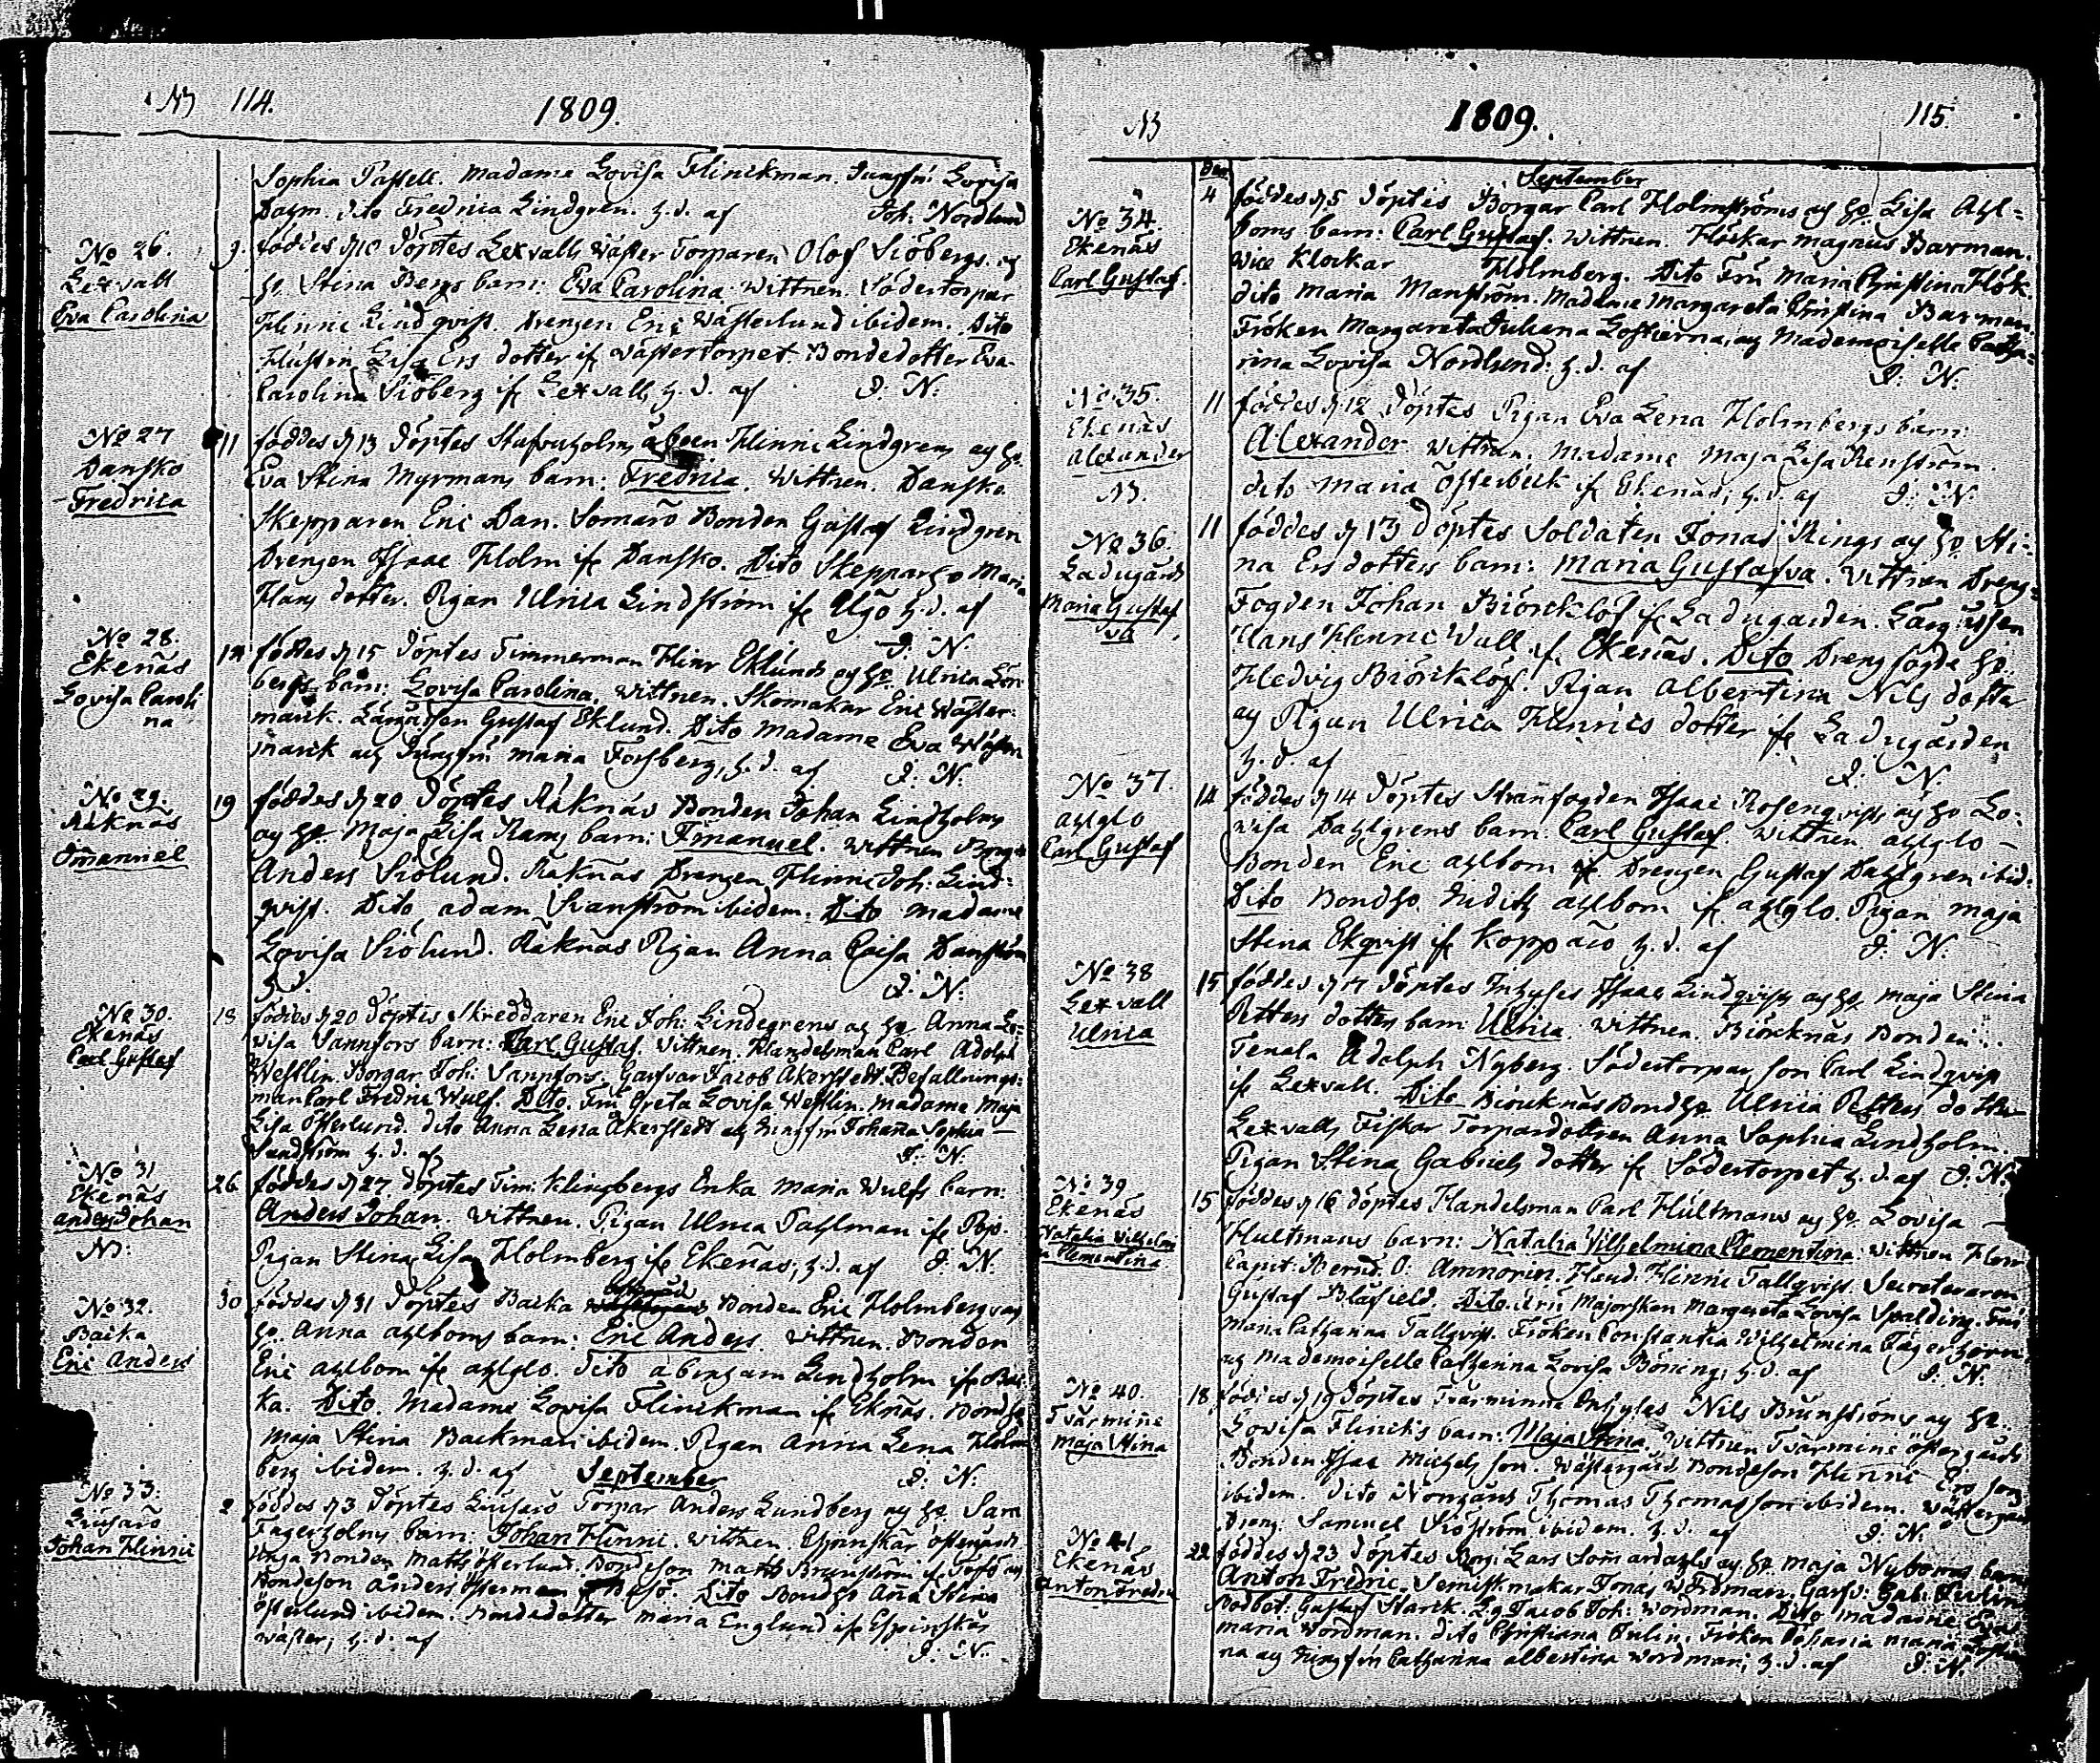 N3 114. 1809.
Sophia Passell. Madame Lovisa Flinckman. Jungfr: Lovisa
dito Fredrica Lindgren. h. d. af Joh: Nordlund
No 26.
Lexvall
Eva Carolina
9. föddes d 10 döptes Lexvalls Wäster Torparen Olof Siöbergs ag
h. Stina Bergs barn: Eva Carolina. Wittnen. Södertorpar
Hinric Lindqvist. Drengen Eric Wästerlund ibidem. Dito
Hustru Lisa Ers dotter if Wästertorpet Bondedotter Eva
Carolina Siöberg if Lexvall, h. d. af J: N:
No 27
Dansko
Fredrica
11 föddes d 13 döptes Hinric Lindgrens ag h.
Eva Stina Myrmans barn: Fredrica. Wittnen. Dansko
Skepparen Eric Dan. Somarö Bonden Gustaf Lindgren
Drengen Isaac Holm if Dansko. Dito Skepparh. Maria
Hans dotter. Pigan Ulrica Lindström if Älgö h. d. af
J: N:
No 28.
Ekenäs
Lovisa Caroli
na
föddes d 15 döptes Timmerman Hinr Eklunds ag h. Ulrica
bergs barn: Lovisa Carolina. Wittnen. Skomakar Eric Wäster:
marck. Gustaf Eklund. Dito Madame Eva Wäster
marck ag Jungfru Maria Forsberg, h. d. af J: N:
No 29.
Räknäs
Emanuel
19 föddes d 20 döptes Räknäs Bonden Johan Lindholms
ag h. Maja Lisa Rams barn: Emanuel. Wittnen
Anders Siölund. Räknäs Drengen Hinric Joh: Lind:
qvist. Dito adam Svanström ibidem. Dito Madame
Lovisa Siölund. Räknäs Pigan Anna Cajsa Danström
h d. J: N:
No 30.
Ekenäs
Carl Gustaf
18 föddes d 20 döptes Skreddaren Eric Joh: Lindegrens ag h. Anna Lo:
visa Sannfors barn: Carl Gustaf. Wittnen. Handelsman Carl Adolph
Westlin. Borgar. Joh: Sannfors. Garfvar Jacob Åkerstedt. Befallnings:
man Carl Fredric Wulf. Dito. Fru Greta Lovisa Westlin. Madame Maja
Lisa Österlund. dito Anna Lena Åkerstedt ag Jungfru Johanna Sophia
Sundström h. d. af J: N:
No 31
Ekenäs
anders Johan
N3:
26 föddes d 27 döptes Tim: Klingbergs Enka Maria Wulfs barn:
Anders Johan. Wittnen. Pigan Ulrica Tahlman if Pojo.
Pigan Stina Lisa Holmberg if Ekenäs, h. d. af J: N:
No 32.
Backa
Eric Anders
30 föddes d 31 döptes Backa Bonden Eric Holmbergs ag
h. Anna ahlboms barn: Eric Anders. Wittnen. Bonden
Eric ahlbom if ahlglo. Dito abraham Lindholm if Bac
ka. Dito. Madame Lovisa Flinckman if Eknäs. Bondh.
Maja Stina Backman ibidem. Pigan Anna Lena Holm
berg ibidem. h. d. af J: N:
September
No 33.
Johan Hinric
2 föddes d 3 döptes Torpar Anders Lundberg ag h. Sara
Fagerholms barn: Johan Hinric. Wittnen. Espinskär
Bonden Matts Österlund. Bondeson Matts Brunström if
Bondeson anders Österman Dito Bondh. Anna Stina
Österlund ibidem. Bondedotter Maria Englund if Espinskär
Wäster, h. d. af J: N:
N3 1809. 115.
September
No 34.
Ekenäs
Carl Gustaf.
4 föddes d 5 döptes Borgar Carl Holmströms ag h. Lisa Ahl=
boms barn: Carl Gustaf. Wittnen. Magnus Barman.
Vice Klockar Holmberg. Dito Fru Maria Christina
dito Maria Manström. Madame Margareta Christina Barman.
Fröken Margareta Juliana Lostierna, ag Mademoiselle Catha=
rina Lovisa Nordlund. h. d. af J: N:
No 35.
Ekenäs
alexander
N3.
11 föddes d 12 döptes Pigan Eva Lena Holmbergs barn:
Alexander. Wittnen. Madame Maja Lisa Renström.
dito Maria Österbeck if Ekenäs; h. d. af J: N:
No 36.
Ladugård
Maria Gustaf
va
11 föddes d 13 döptes Soldaten Jonas Rings ag h. Sti:
na Ersdotters barn: Maria Gustafva. Wittnen Dreng=
Fogden Johan Biörcklöf if Ladugården.
Hans Hinric Wall if Ekenäs. Dito Drengfogde h.
Hedvig Biörcklöf. Pigan Albertina Nils dotter
ag Pigan Ulrica Hinrics dotter if Ladugården
h. d. af J: N.
No 37.
ahlglo
Carl Gustaf
14 föddes d 14 döptes Isaac Rosenqvists ag h. Lo:
visa Dahlgrens barn: Carl Gustaf. Wittnen ahlglo
Bonden Eric ahlbom if Drengen Gustaf Dahlgren ibid:
Dito Bondh. ahlbom if ahlglo. Pigan Maja
Stina Ekqvist if Koppäro h. d. af J: N:
No 38
Lexvall
Ulrica
15 föddes d 17 döptes Inhyses Isaac Lindqvists ag h. Maja Stina
Petters dotters barn: Ulrica. Wittnen. Biörcknäs Bonden
Tenala Adolph Nyberg. Södertorpar son Carl Lindqvist
if Lexvall. Dito Biörcknäs Bondh. Ulrica Petters dotter
Lexvalls Fiskar Torpardottren Anna Sophia Lindholm.
Pigan Stina Gabriels dotter if Södertorpet h. d. af J: N:
No 39
Ekenäs
Natalia Vilhelmi
na Clementina
15 föddes d 16 döptes Handelsman Carl Hultmans ag h. Lovisa
Hultmans barn: Natalia Vilhelmina Clementina. Wittnen Herr
Capit: Bernd: O: Amnorin. Hand: Hinric Tallqvist. Secreteraren
Gustaf Blåfield. Dito: Fru Majorskan Margareta Lovisa Spalding. Fru
Maria Catharina Tallqvist. Fröken Constantia Wilhelmina Fägerhorn
ag Mademoiselle Catharina Lovisa Böning, h. d. af J: N:
No 40.
Tvärminne
Maja Stina
18 föddes d 19 döptes Tvärminne Inhyses Nils Brunströms ag h.
Lovisa Flincks barn: Maja Stina. Wittnen Tvärminne Östergårds
Bonden Isac Michels son. Wästergårds Bondeson Hinric Ers son
ibidem. Dito Thomas Thomasson ibidem. Wästergårds
Dreng Samuel Siöström ibidem. h. d. af J: N:
No 41.
Ekenäs
Anton Fredric
22 föddes d 23 döptes Borg: Lars ag h. Maja Nyboms barn
Anton Fredric. Jonas Wordman, Garfv: Gab:
Gustaf Starck. Jacob Joh: Wordman. Dito Madame Eva
Maria Wordman. dito Christiana Fröken Johanna Maria
na ag Jungfru Catharina albertina Wordman; h. d. af J: N.